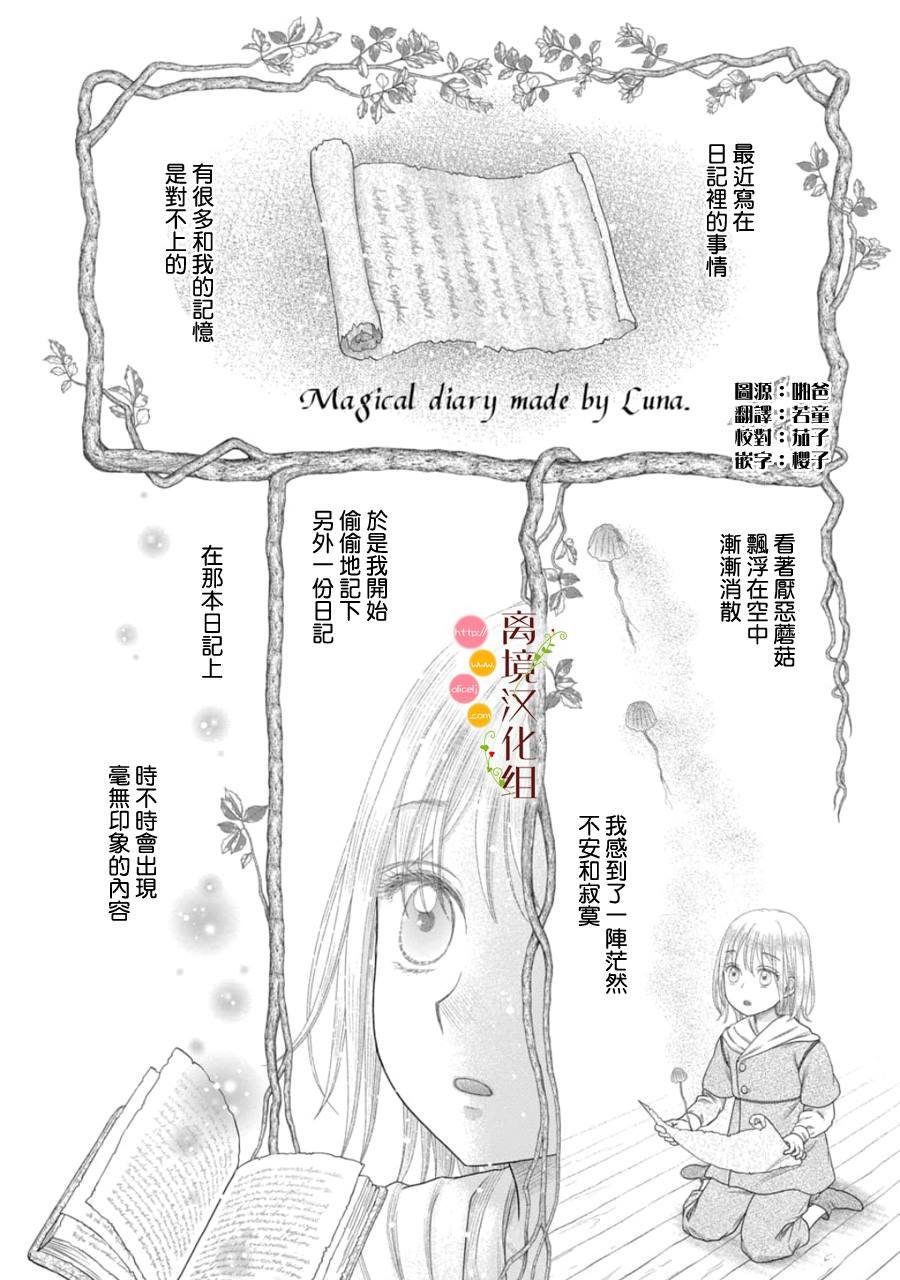 最近寫在
日記裡的事情
有很多和我的記憶
是對不上的
Magical diary made by Luna.
圖源：啪爸
翻譯：若童
校對：茄子
嵌字：櫻子
看著厭惡蘑菇
飄浮在空中
漸漸消散
我感到了一陣茫然
不安和寂寞
於是我開始
偷偷地記下
另外一份日記
在那本日記上
時不時會出現
毫無印象的內容
离境汉化组
http://
www.
olicelj
.com